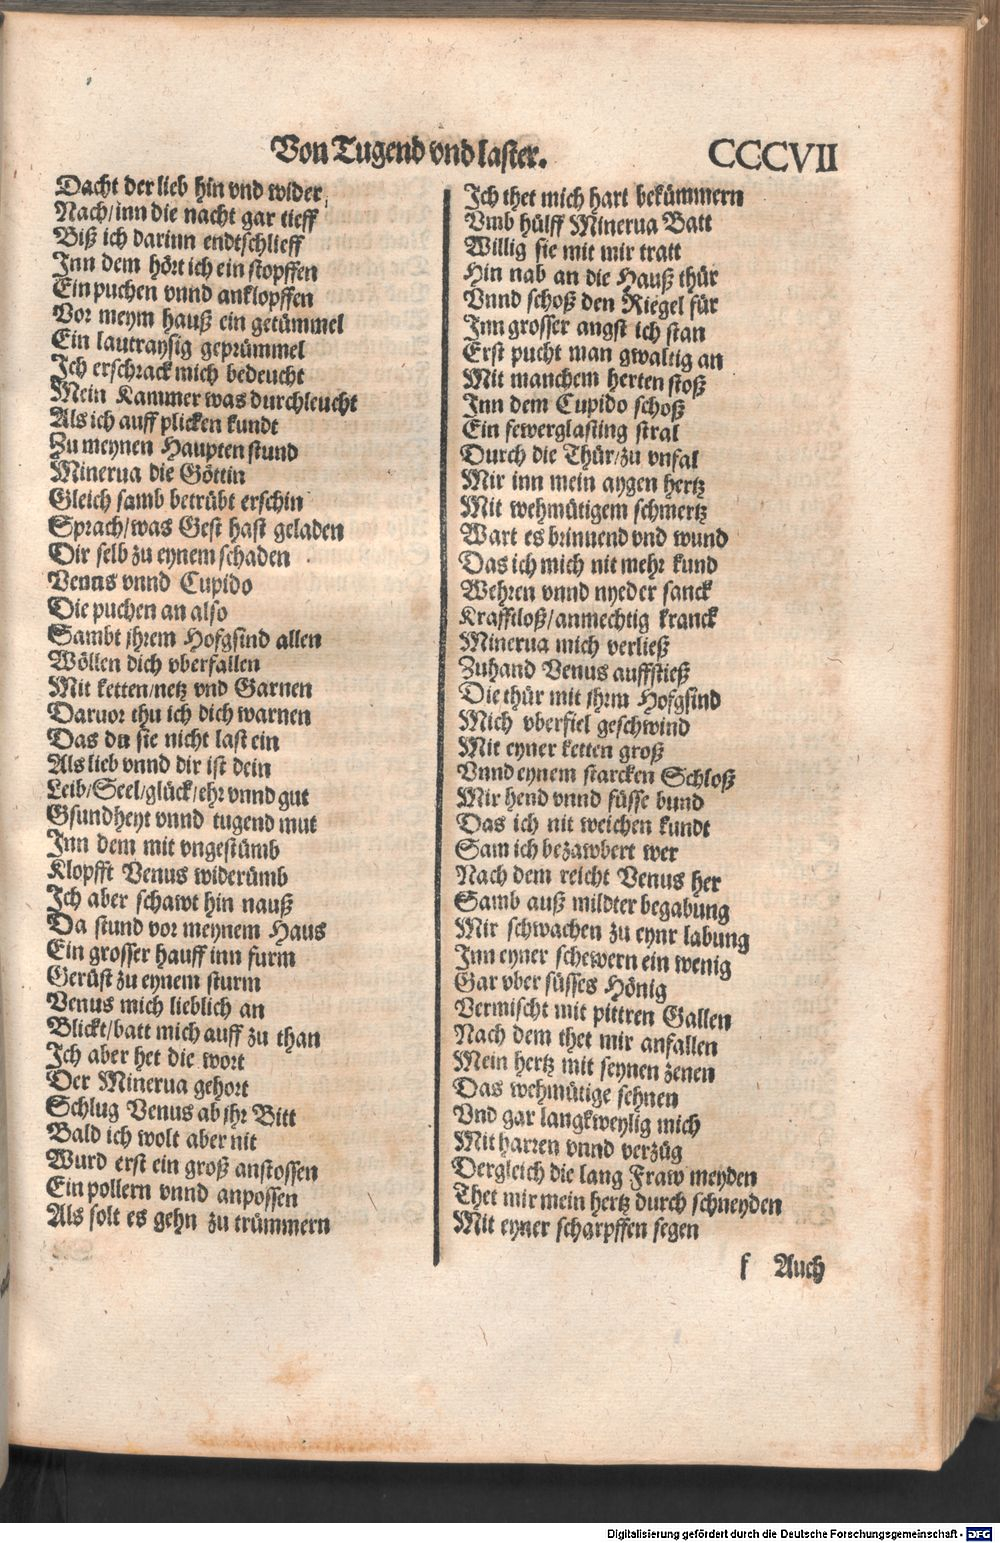 Von Tugend vnd laster.
CCCVII
Dacht der lieb hin vnd wider,
Nach/inn die nacht gar tieff
Biß ich darinn endtschlieff
Inn dem hört ich ein stopffen
Ein puchen vnnd anklopffen
Vor meym hauß ein getümmel
Ein lautraysig geprümmel
Ich erschrack mich bedeucht
Mein Kammer was durchleucht
Als ich auff plicken kundt
Zu meynen Haupten stund
Minerua die Göttin
Gleich samb betrübt erschin
Sprach/was Gest hast geladen
Dir selb zu eynem schaden
Venus vnnd Cupido
Die puchen an also
Sambt jhrem Hofgsind allen
Wöllen dich vberfallen
Mit ketten/netz vnd Garnen
Daruor thu ich dich warnen
Das du sie nicht last ein
Als lieb vnnd dir ist dein
Leib/Seel/glück/ehr vnnd gut
Gsundheyt vnnd tugend mut
Inn dem mit vngestümb
Klopfft Venus widerümb
Ich aber schawt hin nauß
Da stund vor meynem Haus
Ein grosser hauff inn furm
Gerüst zu eynem sturm
Venus mich lieblich an
Blickt/batt mich auff zu than
Ich aber het die wort
Der Minerua gehort
Schlug Venus ab jhr Bitt
Bald ich wolt aber nit
Wurd erst ein groß anstossen
Ein pollern vnnd anpossen
Als solt es gehn zu trümmern
Ich thet mich hart bekümmern
Vmb hülff Minerua Batt
Willig sie mit mir tratt
Hin nab an die Hauß thür
Vnnd schoß den Riegel für
Inn grosser angst ich stan
Erst pucht man gwaltig an
Mit manchem herten stoß
Inn dem Cupido schoß
Ein fewerglasting stral
Durch die Thür/zu vnfal
Mir inn mein aygen hertz
Mit wehmütigem schmertz
Wart es brinnend vnd wund
Das ich mich nit mehr kund
Wehren vnnd nyeder sanck
Krafftloß/anmechtig kranck
Minerua mich verließ
Zuhand Venus auffstieß
Die thür mit jhrm Hofgsind
Mich vberfiel geschwind
Mit eyner ketten groß
Vnnd eynem starcken Schloß
Mir hend vnnd füsse bund
Das ich nit weichen kundt
Sam ich bezawbert wer
Nach dem reicht Venus her
Samb auß mildter begabung
Mir schwachen zu eynr labung
Inn eyner schewern ein wenig
Gar vber süsses Hönig
Vermischt mit pittren Gallen
Nach dem thet mir anfallen
Mein hertz mit seynen zenen
Das wehmütige sehnen
Vnd gar langkweylig mich
Mit harren vnnd verzüg
Dergleich die lang Fraw meyden
Thet mir mein hertz durch schneyden
Mit eyner scharpffen segen
f Auch
Digitalisierung gefördert durch die Deutsche Forschungsgemeinschaft - DFG